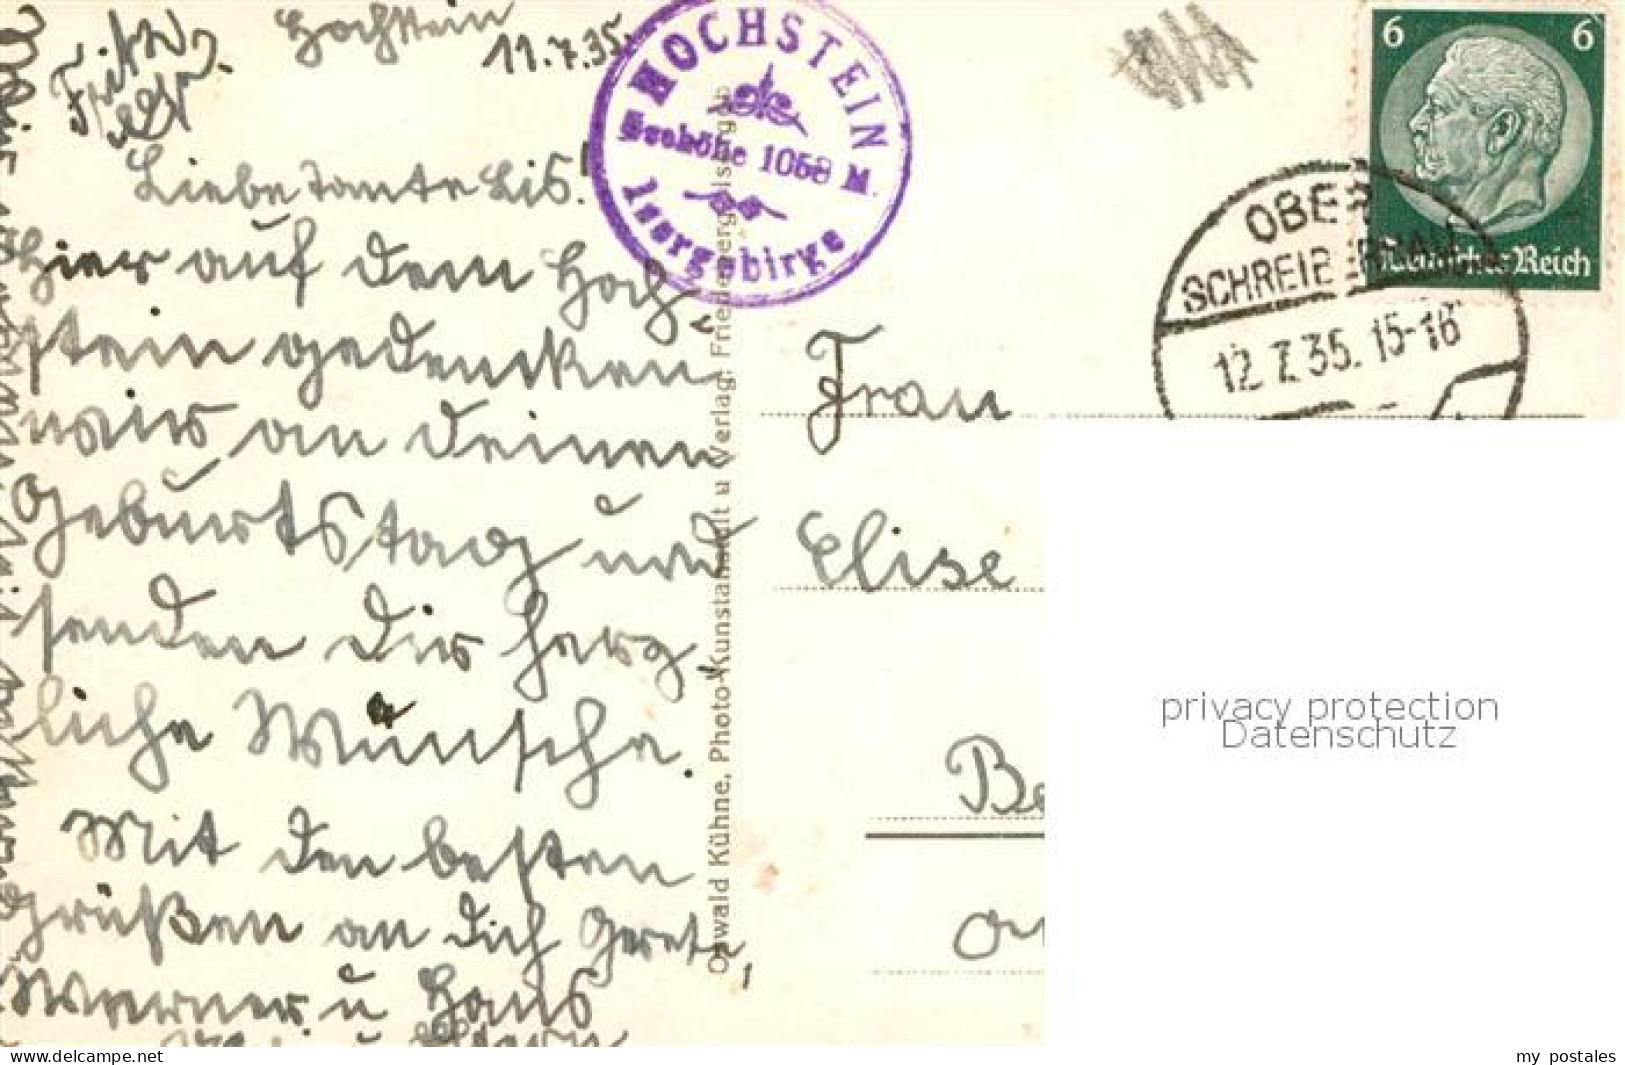 Hochstein
11.7.35.
Fritz
Liebe Tante Lis!
Hier auf dem Hoch-
stein gedenken
wir an deinen
Geburtstag und
senden dir herz-
liche Wünsche.
Mit den besten
Grüßen an dich Grete,
Werner u Hans
HOCHSTEIN
Seehöhe 1058 M.
Isergebirge
Oswald Kühne, Photo-Kunstanstalt u Verlag, Friedeberg Isergeb.
6 6
Deutsches Reich
OBER
SCHREIBERHAU
12.7.35. 15-16
Frau
Elise
Be
privacy protection
Datenschutz
delcampe.net
my postales